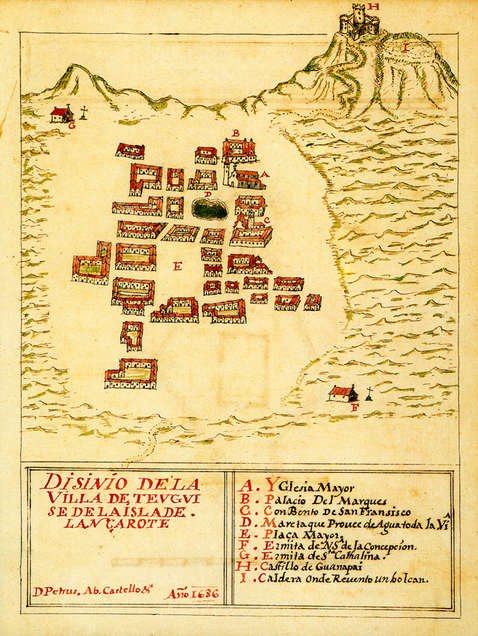 H
I
G
B
A
D
C
E
F
DISINIO DE LA
VILLA DE TEVGUI
SE DE LA ISLA DE.
LANÇAROTE
D Petrus. Ab. Castello &ª
Año 1686
A. YGlesia Mayor
B. Palacio Del Marques
C. ConBento De San Fransisco
D. Mareta que Provee de Agua toda la Viª
E. Plaça Mayor
F. Ermita de Nª Sª de la Concepcion.
G. Ermita de Sta Cathalina.
H. Castillo de Guanapai
I. Caldera Onde Revento un bolcan.